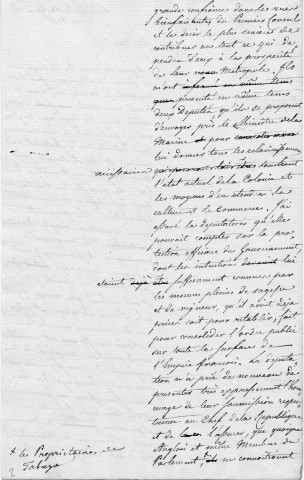 grande confiance dans les vues
bienfaisantes du Premier Consul
et le désir le plus sincère de
contribuer en tout ce qui dé
pendra d'eux à la prospérité
de leur Métropole. Ils
m'ont
présenté en même tems
deux Députés qu'ils se proposent
d'envoyer près le Ministre de la
Marine pour
lui donner tous les éclaircissemens
nécessaires touchant
l'état actuel de la Colonie et
les moyens d'en étendre la
culture et le commerce. J'ai
assuré la députation qu'elle
pouvait compter sur la pro
tection efficace du Gouvernement,
dont les intentions lui
étaient suffisamment connues par
les mesures pleines de sagesse
et de vigueur, qu'il avait déjà
prises soit pour rétablir, soit
pour consolider l'ordre public
sur toute la surface de
l'Empire français. La députa
tion m'a prié de nouveau de
présenter très expressément l'hom
mage de leur soumission respec
tueuse au Chef de la République
et de l'assurer, que quoique
Anglois et même Membres du
Parlement, ils connoitroient
+ les Propriétaires de
Tabago